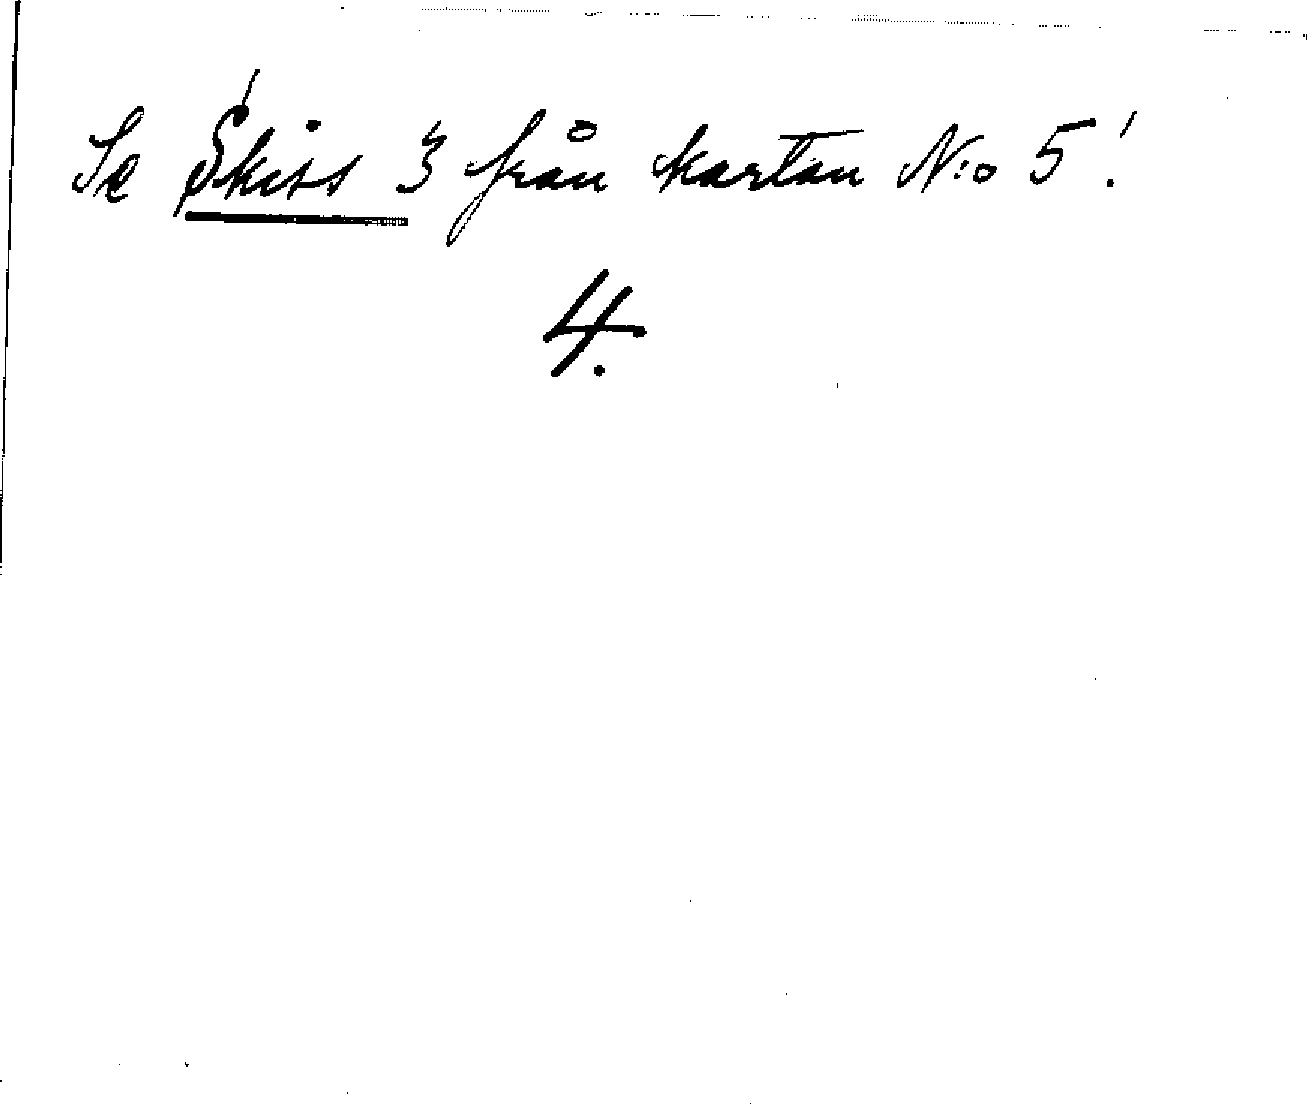 Se Skiss 3 från kartan N:o 5!
4.